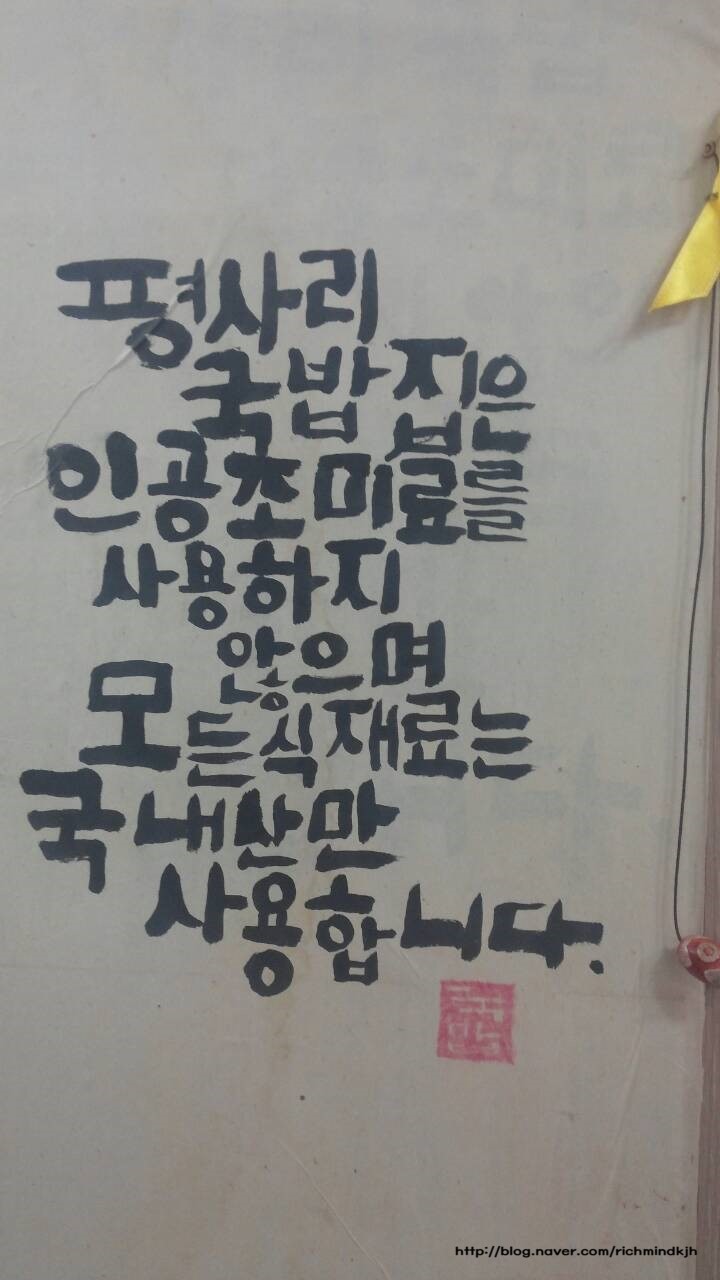 평사리
국밥집은
인공초미료를
사용하지
않으며
모든식재료는
국내산만
사용합니다.
http://blog.naver.com/richmindkjh